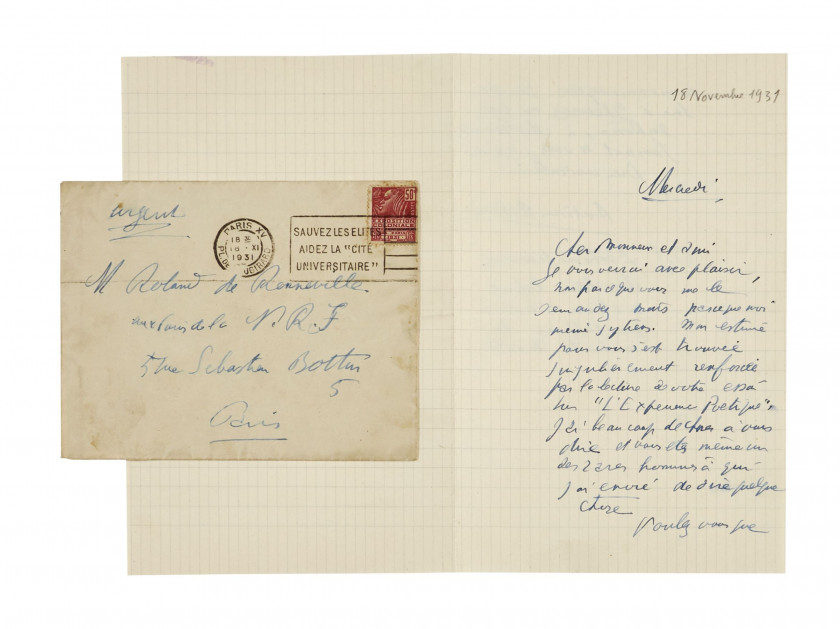 urgent
PARIS XV
18 H
18 • XI
1931
SAUVEZ LES ELITES
AIDEZ LA "CITÉ
UNIVERSITAIRE"
50c
EXPOSITION
COLONIALE
M Roland de Renneville
aux soins de la N. R. F
5 rue Sébastien Bottin
5
Paris
18 November 1931
Mercredi,
Cher Monsieur et ami
Je vous verrai avec plaisir,
non parce que vous me le
demandez mais parce que moi
même j'y tiens. Mon estime
pour vous s'est trouvée
singulièrement renforcée
par la lecture de votre essai
sur "L'Expérience Poétique".
J'ai beaucoup de choses à vous
dire et vous êtes même un
des rares hommes à qui
j'ai envie de dire quelque
chose
Voulez vous que